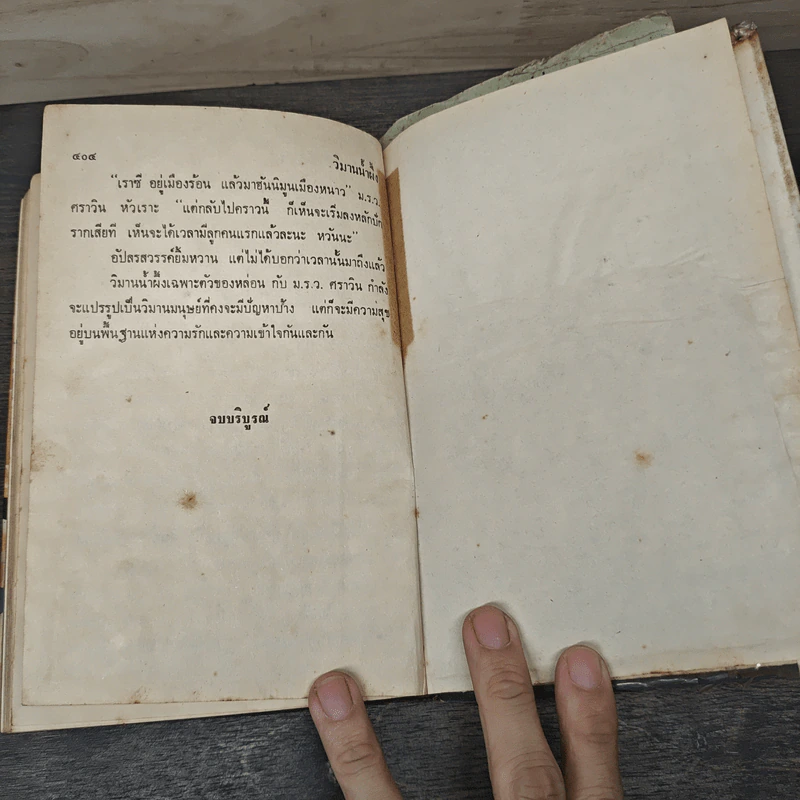 ๔๐๔
วิมานน้ำผึ้ง
“เราซี อยู่เมืองร้อน แล้วมาฮันนิมูนเมืองหนาว” ม.ร.ว.
ศราวิน หัวเราะ “แต่กลับไปคราวนี้ ก็เห็นจะเริ่มลงหลักปัก
รากเสียที เห็นจะได้เวลามีลูกคนแรกแล้วละนะ หวันนะ”
อัปสรสวรรค์ยิ้มหวาน แต่ไม่ได้บอกว่าเวลานั้นมาถึงแล้ว
วิมานน้ำผึ้งเฉพาะตัวของหล่อน กับ ม.ร.ว. ศราวิน กำลัง
จะแปรรูปเป็นวิมานมนุษย์ที่คงจะมีปัญหาบ้าง แต่ก็จะมีความสุข
อยู่บนพื้นฐานแห่งความรักและความเข้าใจกันและกัน
จบบริบูรณ์